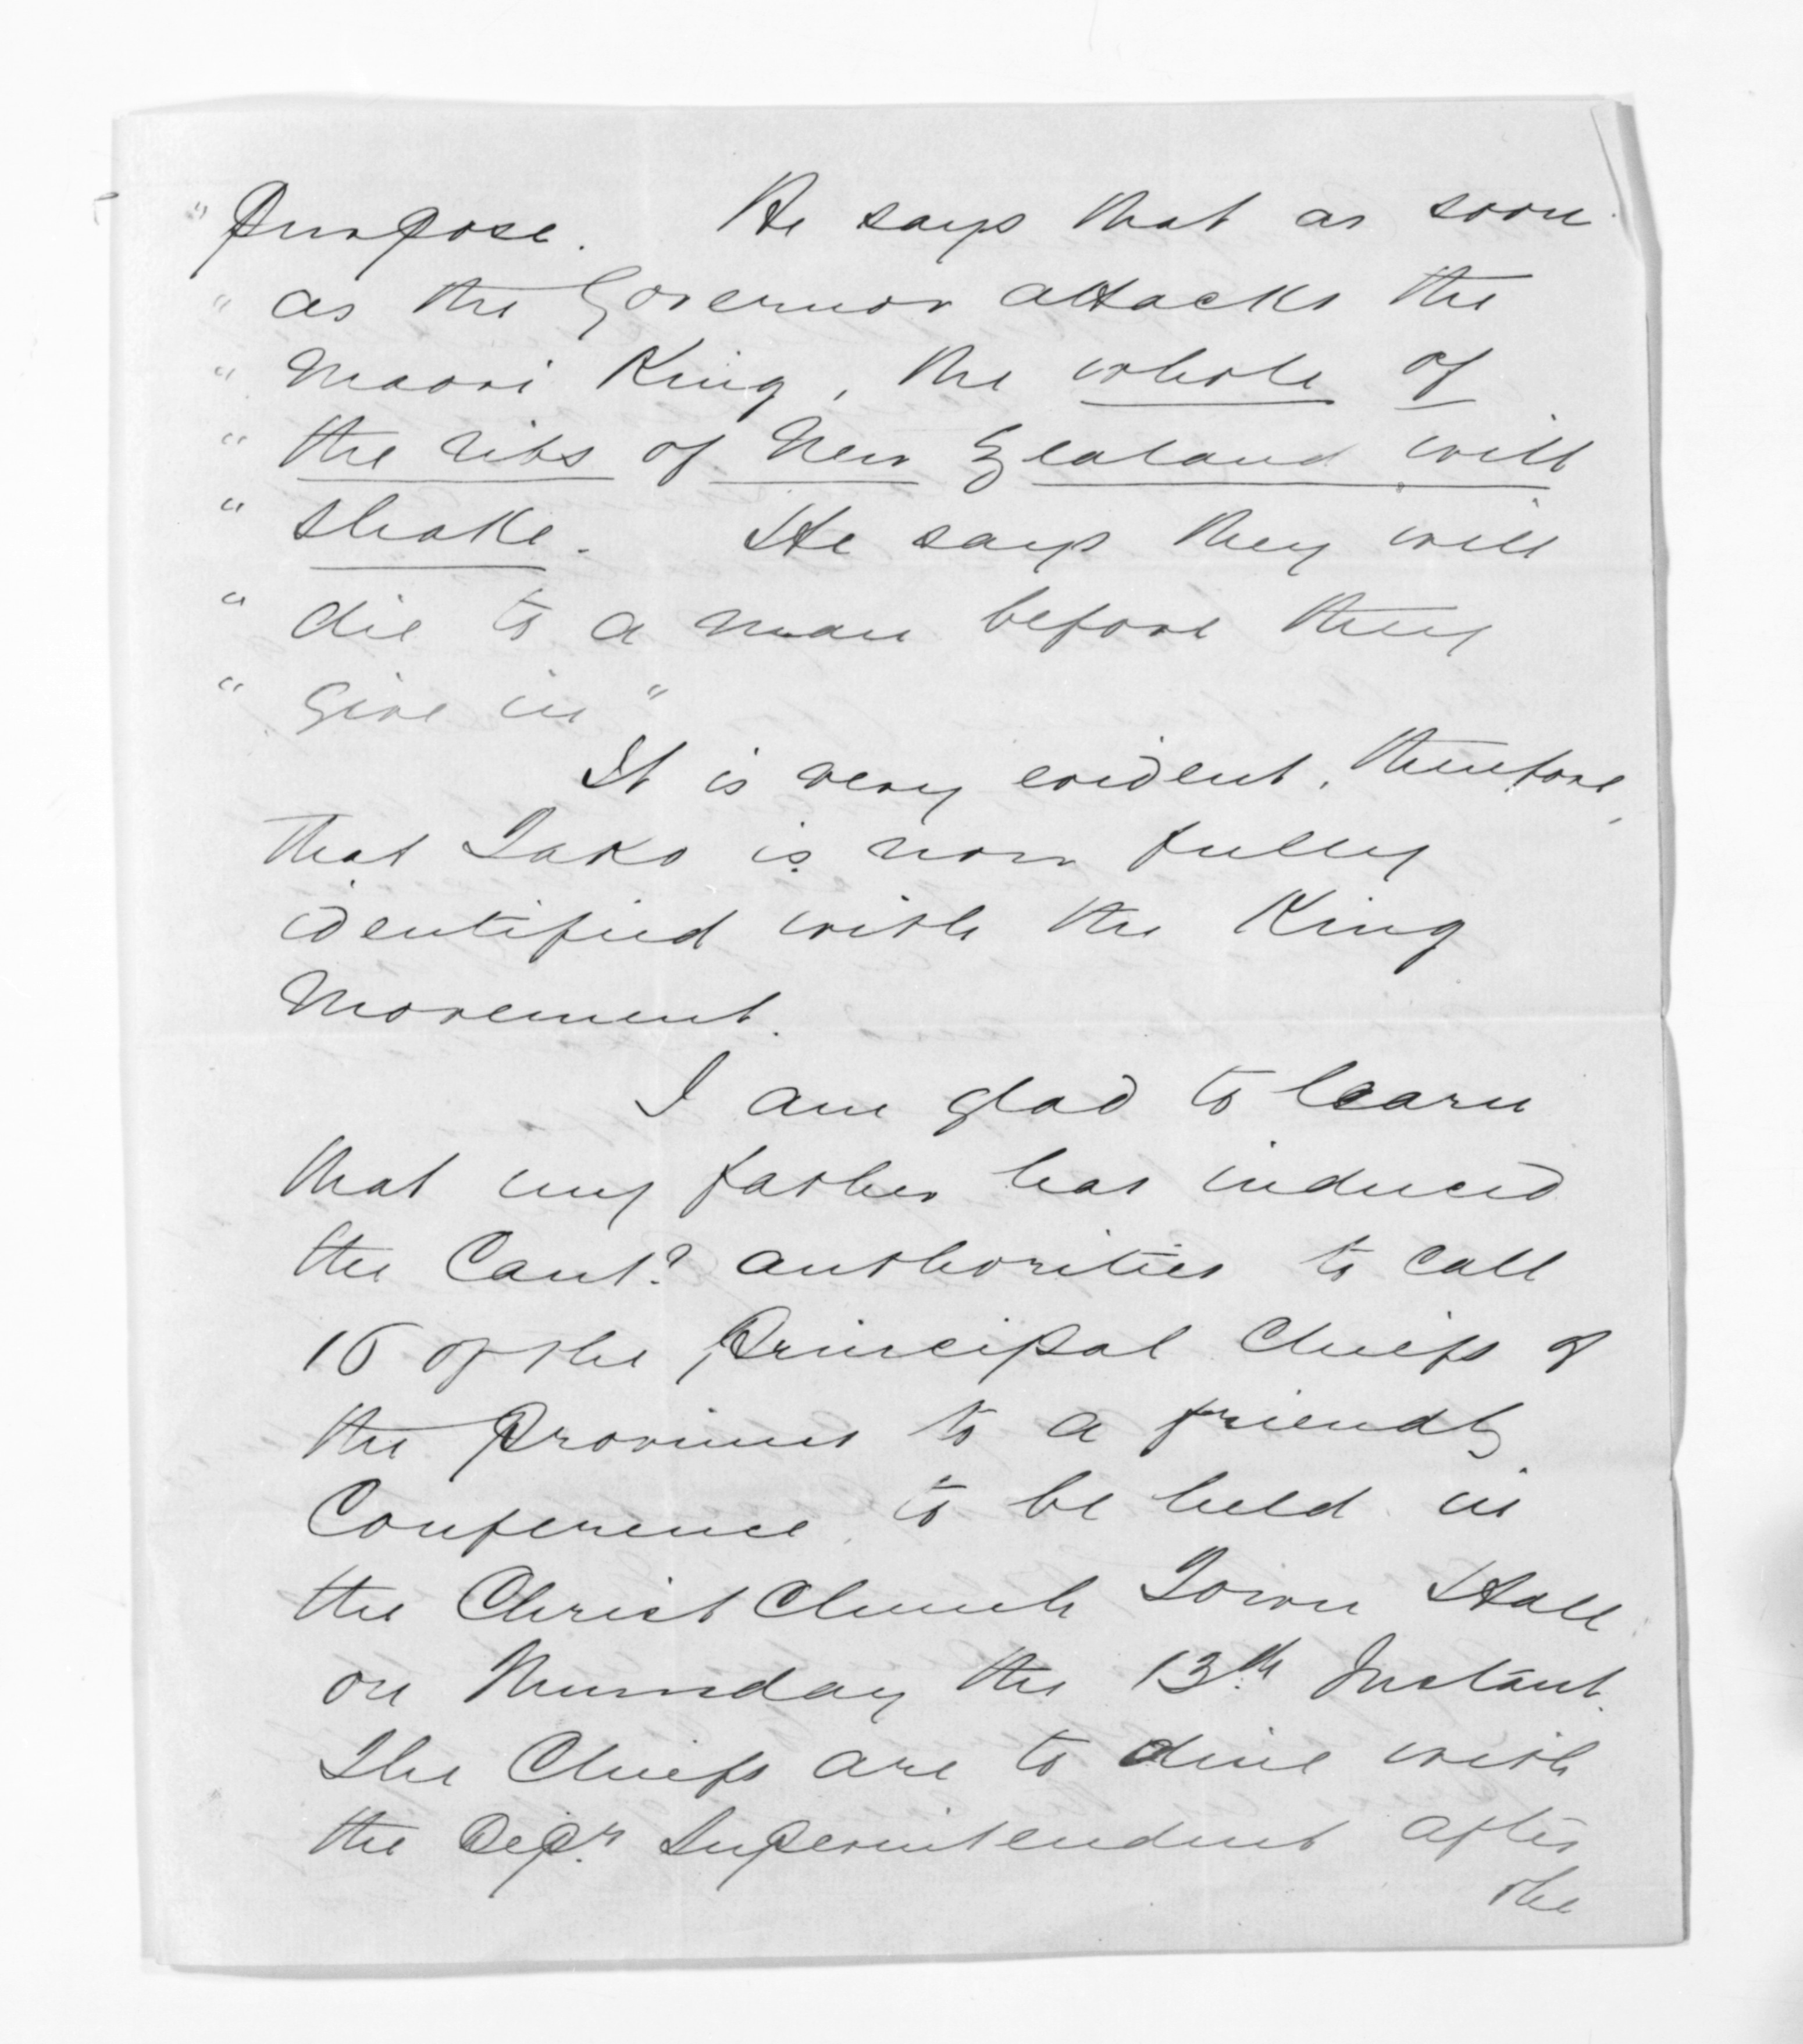 " Purpose. He says that as soon
" as the Governor attacks the
" Maori King, the whole of
" the ribs of New Zealand will
" shake. He says they will
" die to a man before they
" give in"
It is very evident, therefore,
that Tako is now fully
identified with the King
Movement.
I am glad to learn
that my father has induced
the Cant? authorities to call
16 of the Principal Chiefs of
the Province to a friendly
Conference to be held in
the Christ Church Town Hall
on Thursday the 13th Instant.
The Chiefs are to dine with
the Depy Superintendent after
the